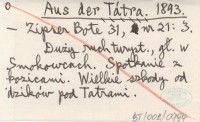 0 Aus der Tátra. 1893.
– Zipser Bote 31, nr 21: 3.
Duży ruch turyst., gł. w
Smokowcach. Spotkanie z
kozicami. Wielkie szkody od
dzików pod Tatrami.